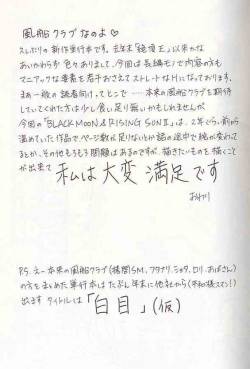 風船クラブなのよ♡
久しぶりの新作単行本です。去年末「鏡頂王」以来かな
あいかわらず色々ありまして、今回は長編モノで内容の方も
マニアックな要素を若干おさえてストレートなHになっております。
まあ一般の読者向け、ってとこで……本来の風船クラブを期待
していてくれた方は少し食い足り無いかもしれませんが
今回の「BLACK MOON & RISING SUN II」は、2年ぐらい前から
温めていた作品で、ページ数が足りないとか話の途中で絵が変わって
るとか、その他もろもろ問題はあるのですが、描きたいものを描くこと
が出来て 私は大変満足です
P.S. えー本来の風船クラブ(拷問SM、フタナリ、ショタ、ロリ、おばさん)
の方をまとめた単行本はたぶん年末に他社から(平和様スマン!)
出ます タイトルは「白目」(仮)